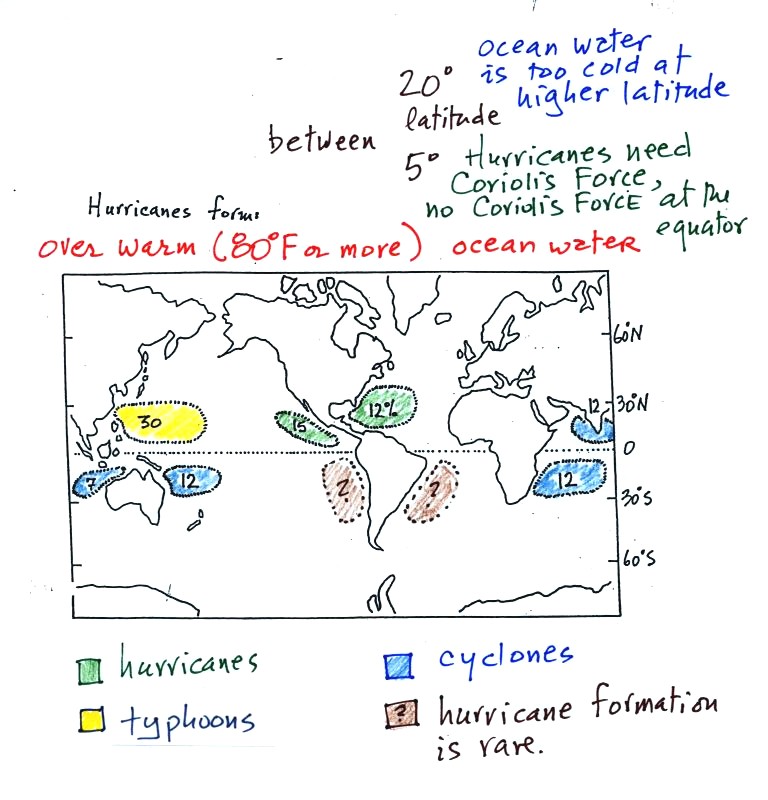 ocean water
is too cold at
higher latitude
20°
latitude
between
5°
Hurricanes need
Coriolis Force,
no Coriolis Force at the
equator
Hurricanes form:
over warm (80°F or more) ocean water
60°N
30°N
0
30°S
60°S
30
15
12%
12
7
12
?
?
12
hurricanes
typhoons
cyclones
? hurricane formation
is rare.